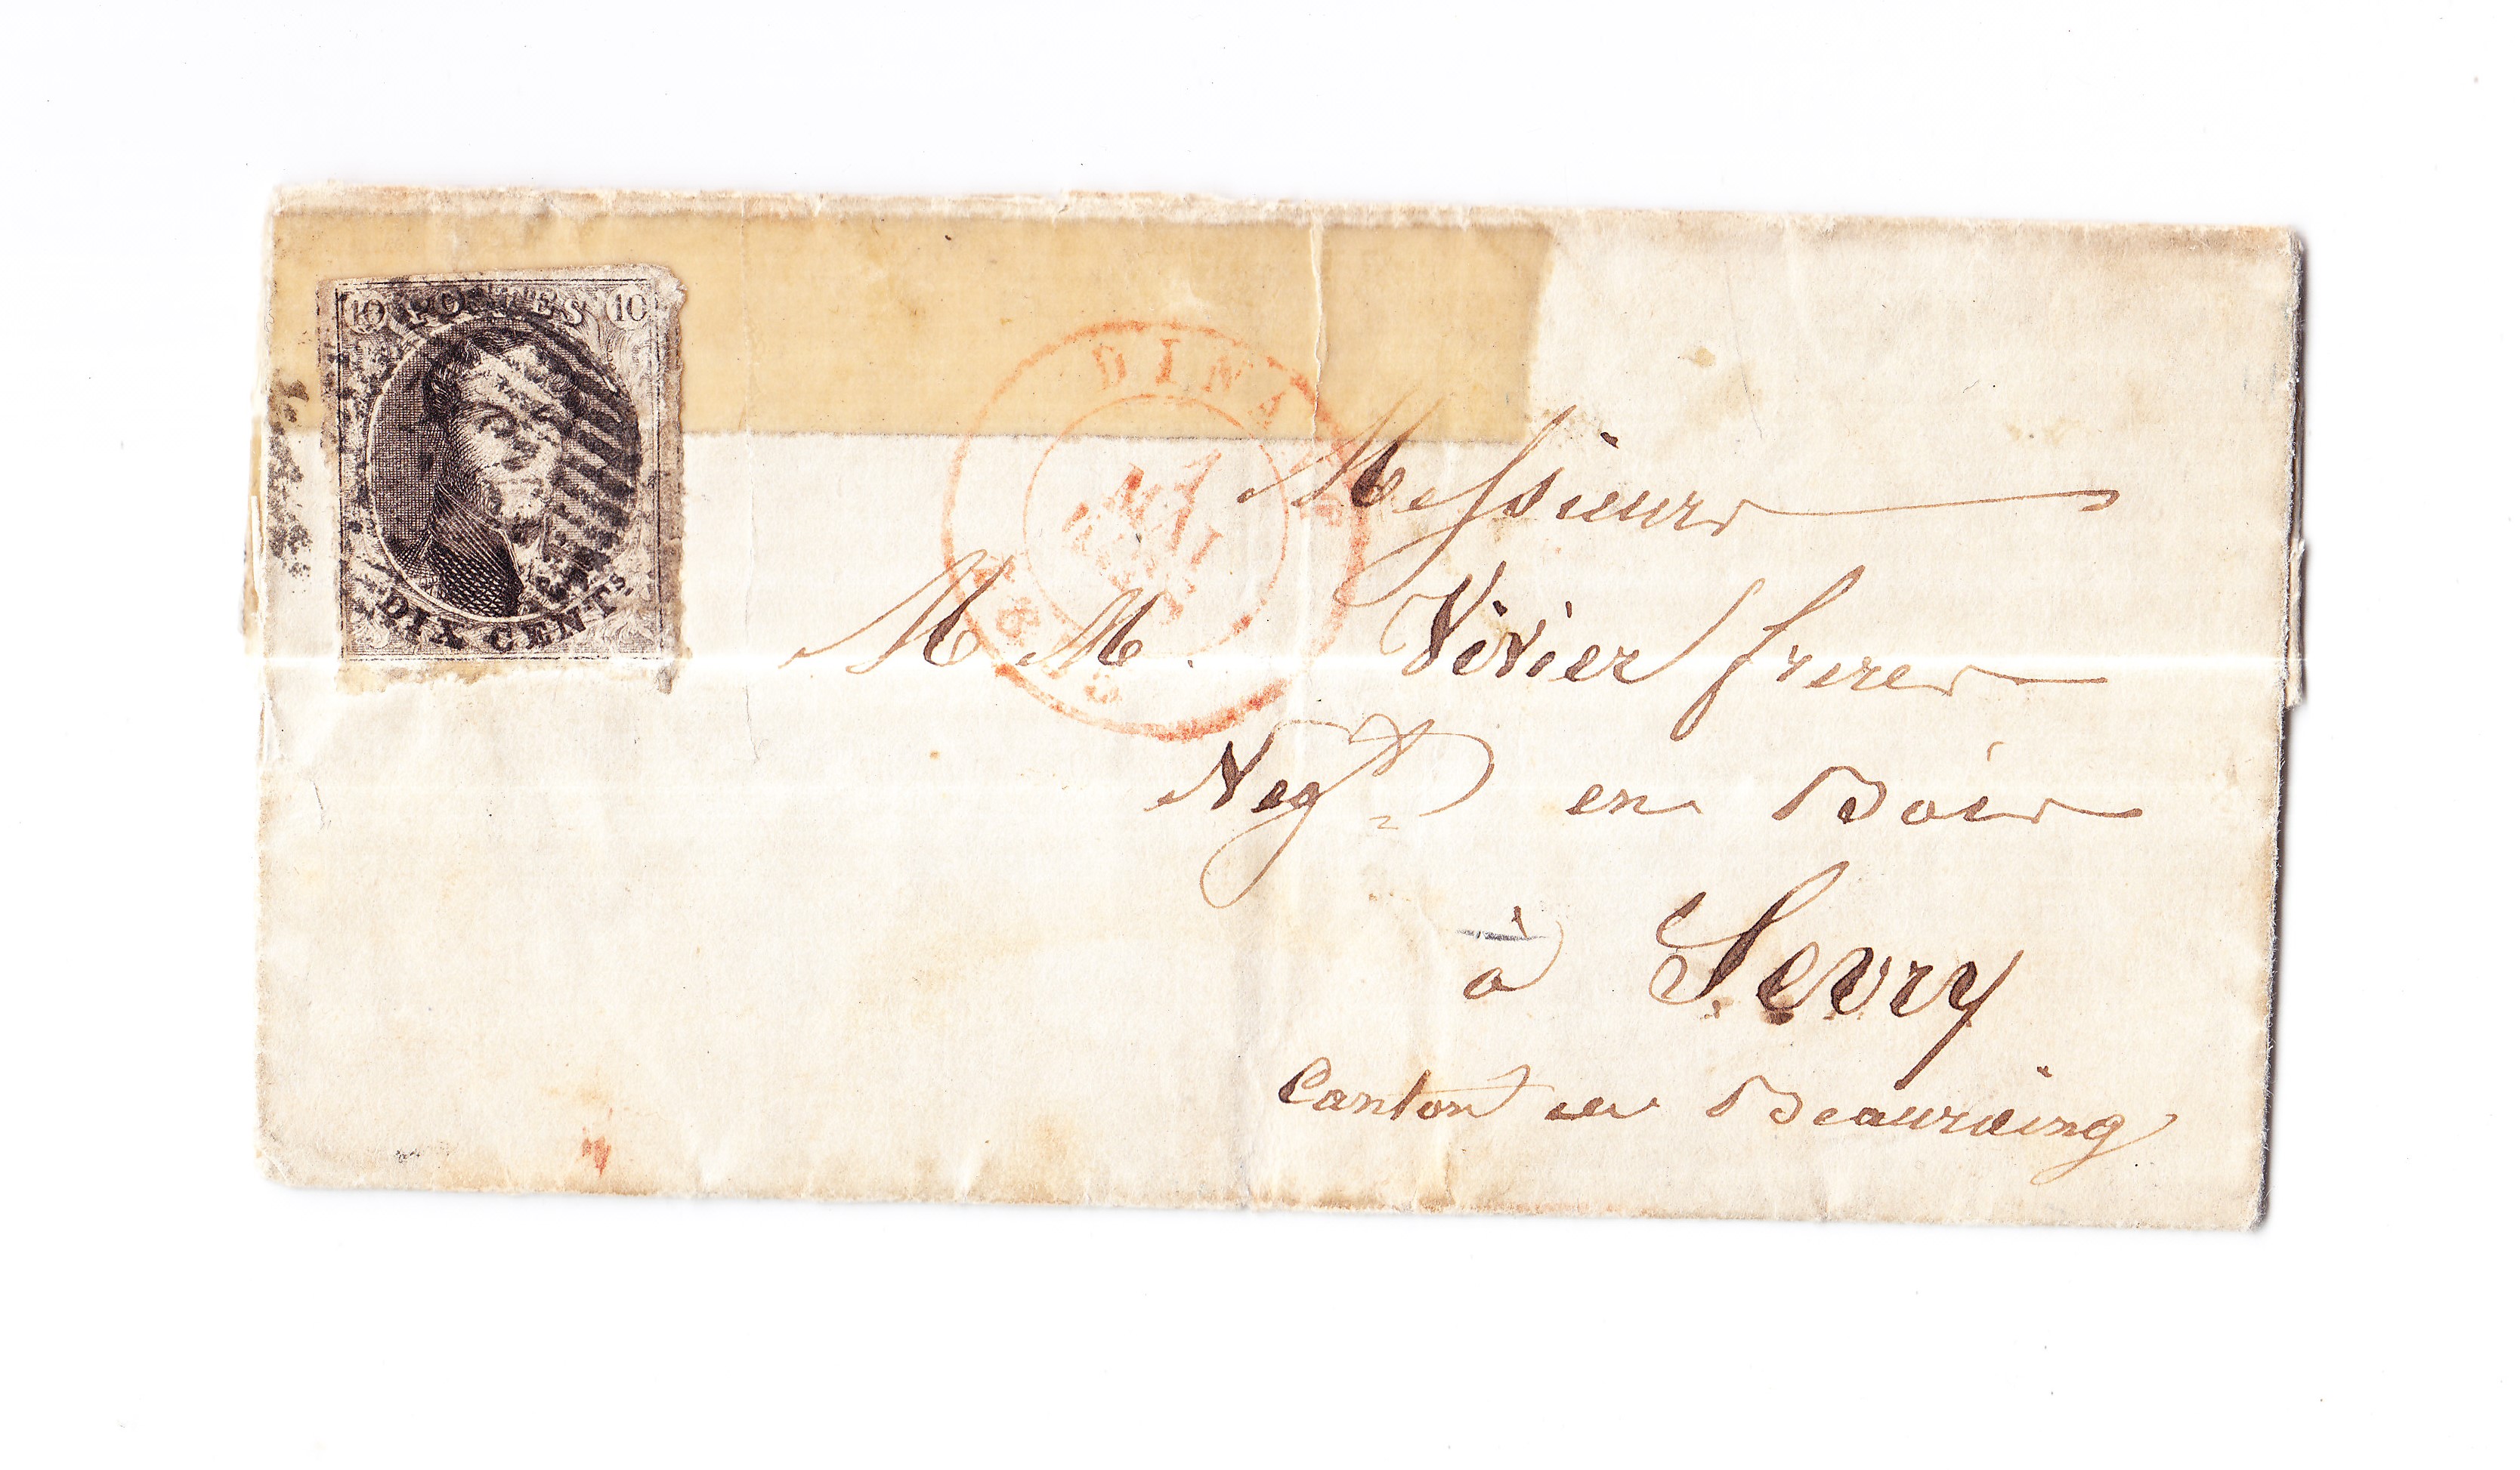 10 POSTES 10
DIX CENTS
DINANT
MAI
Messieurs
M M. Vivier freres
Negt en Bois
à Sevry
Canton de Beauraing